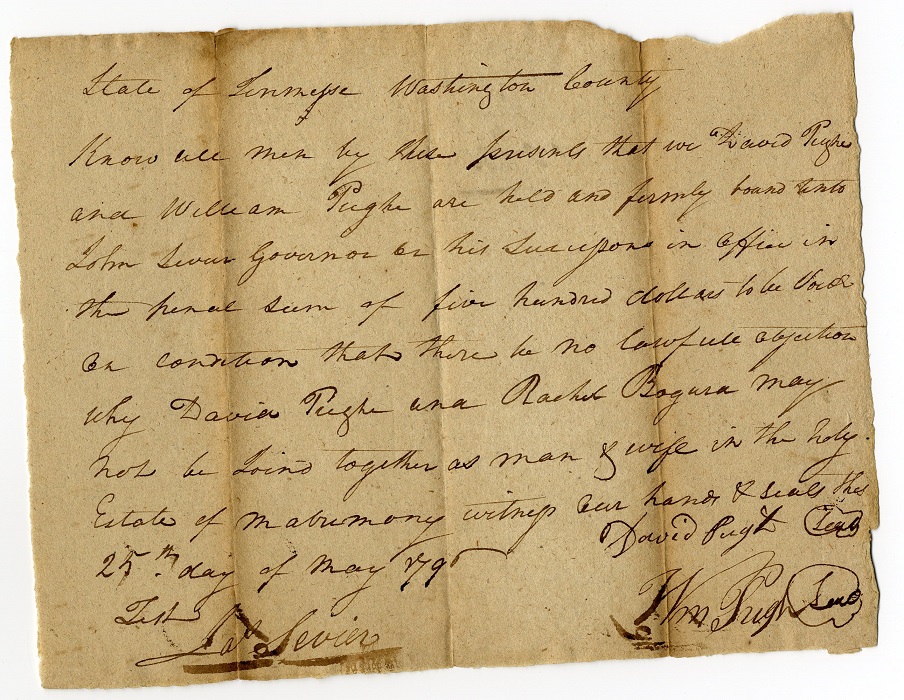 State of Tennessee Washington County
Know all men by these presents that we David Pughe
and William Pughe are held and firmly bound unto
John Sevier Governor or his successors in office in
the penal sum of five hundred dollars to be Void
on condition that there be no lawfull objection
why David Pughe and Rachel Bogard may
not be Joind together as man & wife in the holy
Estate of matrimony witness our hands & seals this
25th day of May 179
David Pugh Seal
Test
Wm Pugh Seal
Jas Sevier